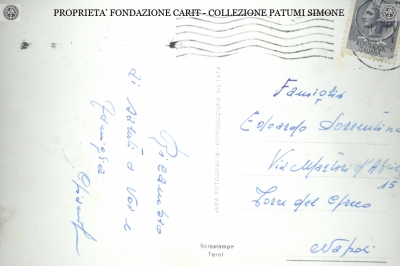 PROPRIETA' FONDAZIONE CARIT - COLLEZIONE PATUMI SIMONE
Ricambio
di saluti a Voi e
famiglia
VERA FOTOGRAFIA - RIPRODUZIONE VIETATA
Rotastampa
Terni
Famiglia
Edoardo Sorrentino
Via Martiri d'
15
Torre del Greco
Napoli